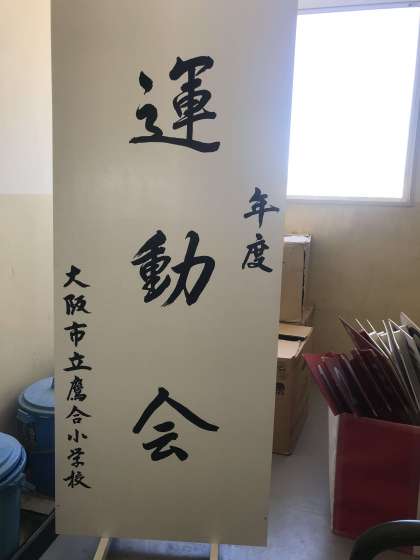 年度
運動会
大阪市立鷹合小学校